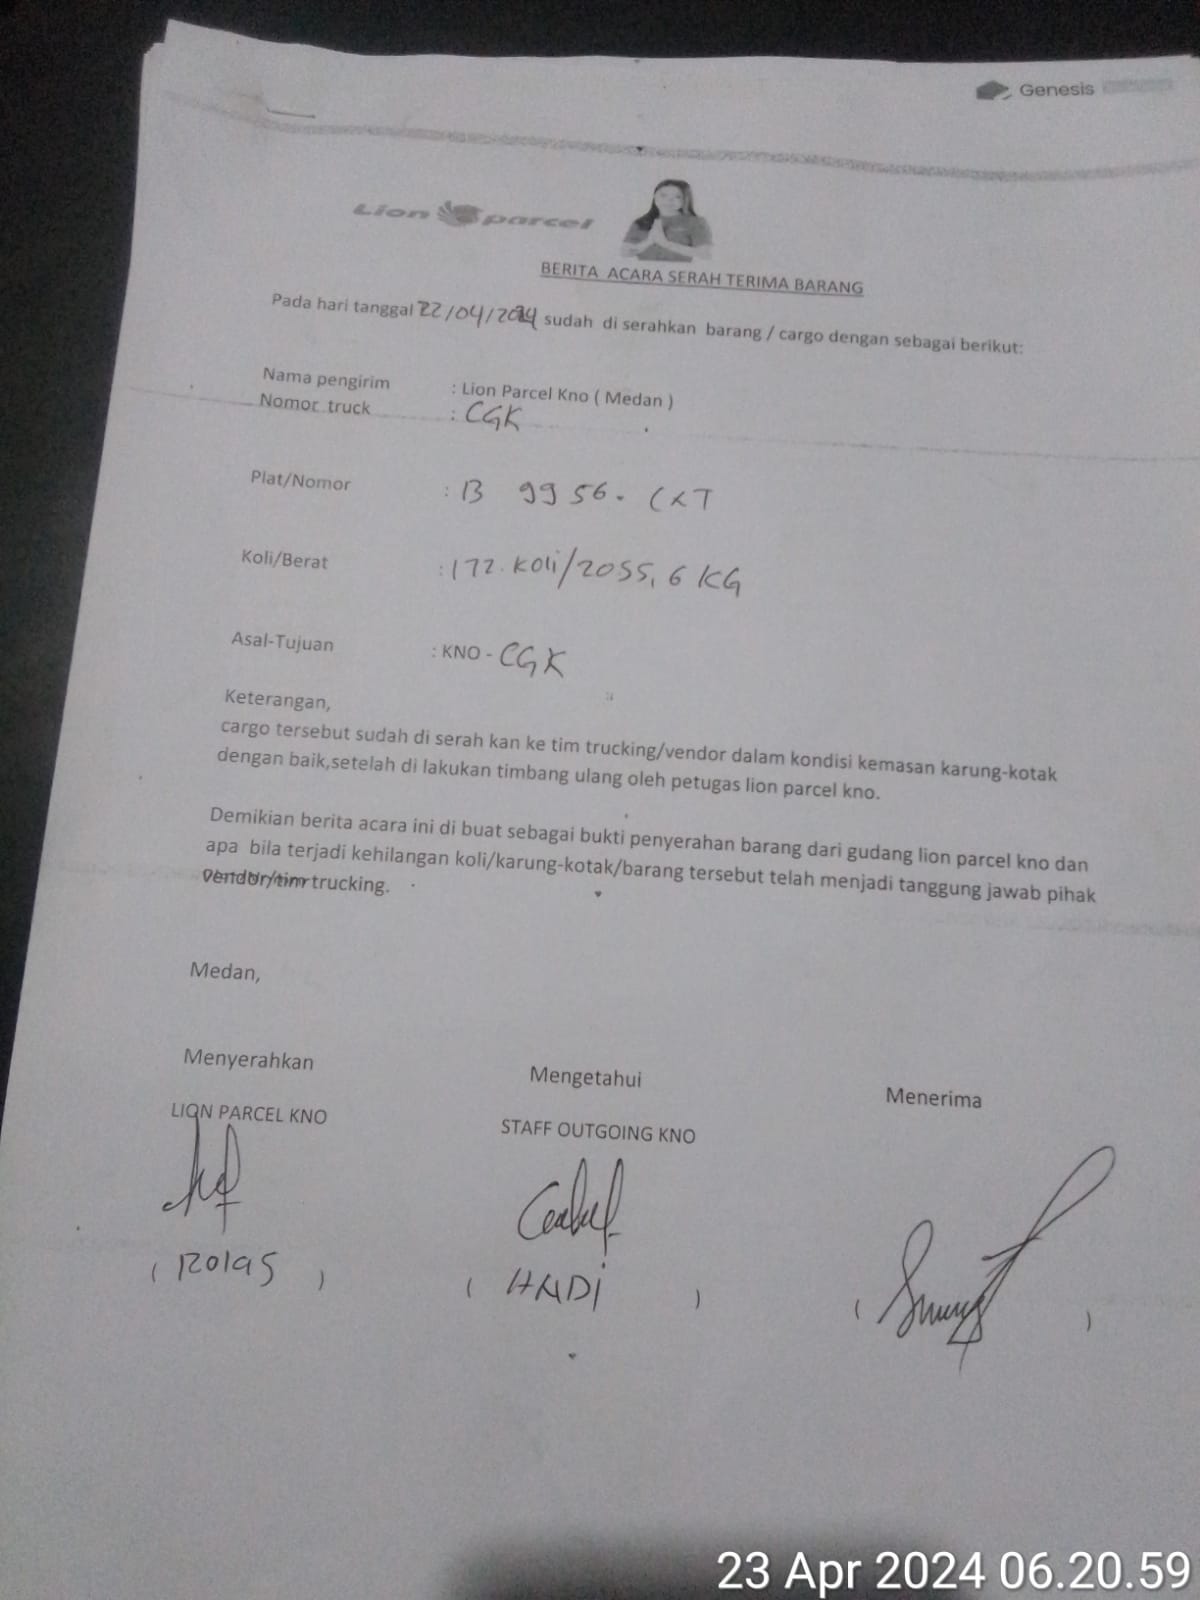 Genesis
Lion parcel
BERITA ACARA SERAH TERIMA BARANG
Pada hari tanggal 22/04/2024 sudah di serahkan barang / cargo dengan sebagai berikut:
Nama pengirim : Lion Parcel Kno ( Medan )
Nomor truck : CGK
Plat/Nomor : B 9956. CXT
Koli/Berat : 172. Koli/2055,6 KG
Asal-Tujuan : KNO - CGK
Keterangan,
cargo tersebut sudah di serah kan ke tim trucking/vendor dalam kondisi kemasan karung-kotak
dengan baik,setelah di lakukan timbang ulang oleh petugas lion parcel kno.
Demikian berita acara ini di buat sebagai bukti penyerahan barang dari gudang lion parcel kno dan
apa bila terjadi kehilangan koli/karung-kotak/barang tersebut telah menjadi tanggung jawab pihak
vendor/tim trucking.
Medan,
Menyerahkan Mengetahui Menerima
LION PARCEL KNO STAFF OUTGOING KNO
( ROLAS ) ( HADI ) ( )
23 Apr 2024 06.20.59